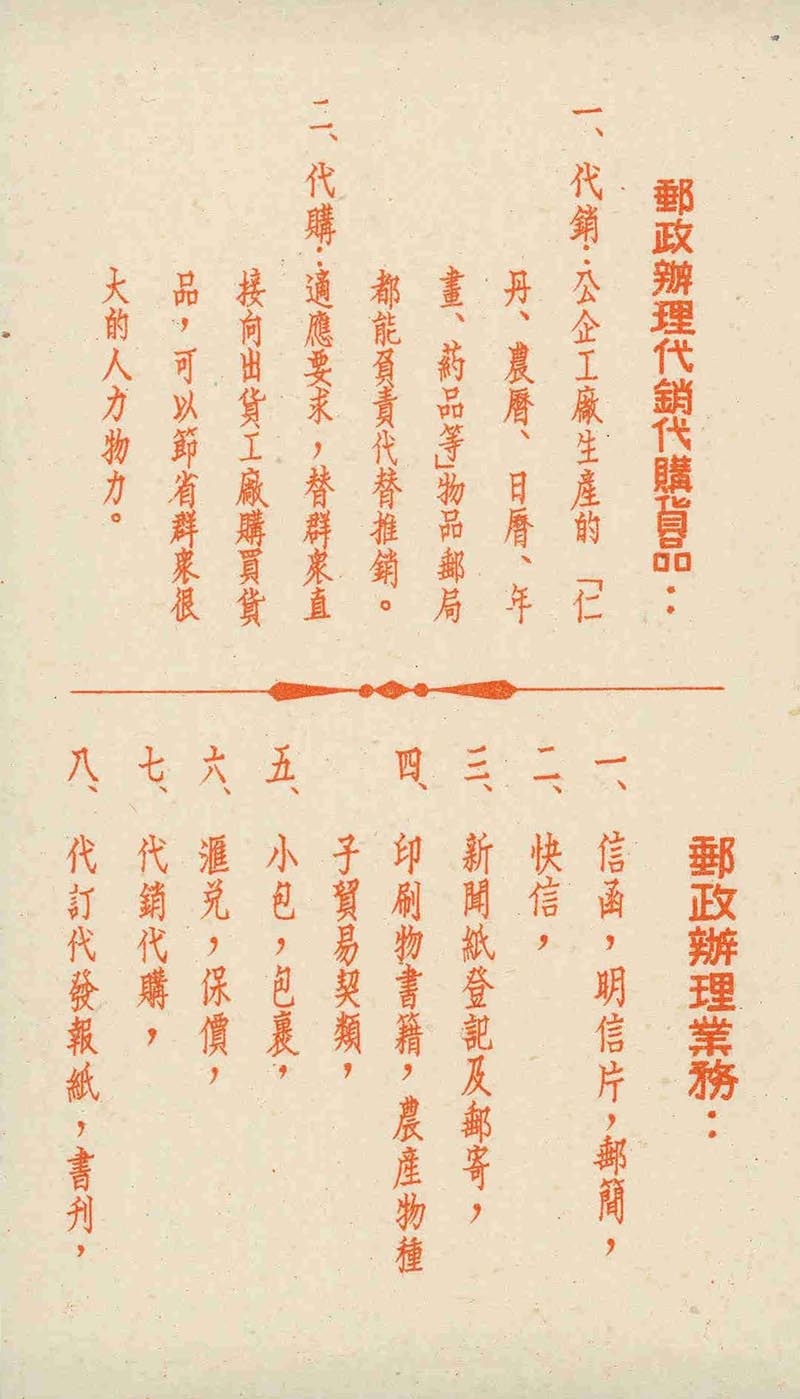 郵政辦理代銷代購貨品：
一、代銷：公企工廠生產的「仁
丹、農曆、日曆、年
畫、葯品等」物品郵局
都能負責代替推銷。
二、代購：適應要求，替群衆直
接向出貨工廠購買貨
品，可以節省群衆很
大的人力物力。
郵政辦理業務：
一、信函，明信片，郵簡，
二、快信，
三、新聞紙登記及郵寄，
四、印刷物書籍，農產物種
子貿易契類，
五、小包，包裹，
六、滙兌，保價，
七、代銷代購，
八、代訂代發報紙，書刊，